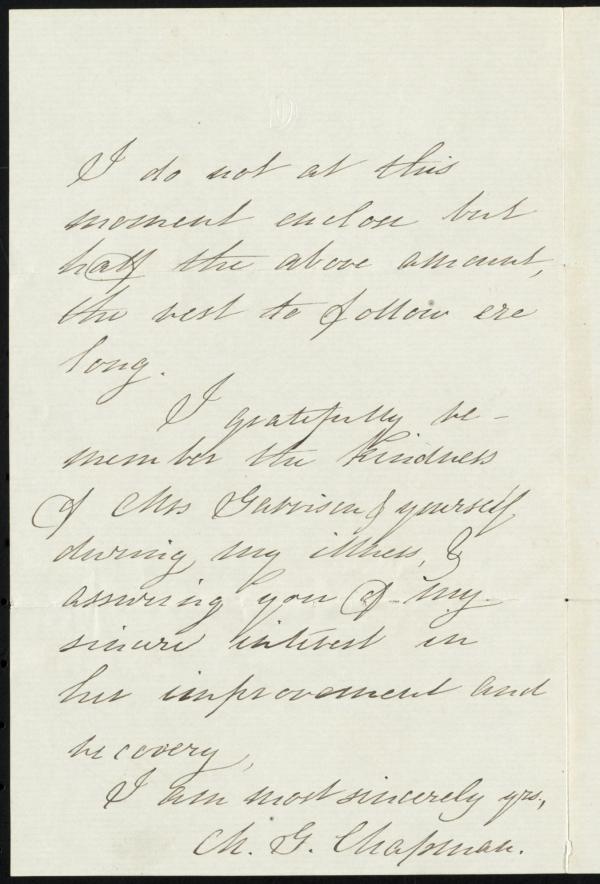 I do not at this
moment enclose but
half the above amount,
the rest to follow ere
long.
I gratefully re-
member the kindness
of Mrs Garrison & yourself
during my illness, &
assuring you of my
sincere interest in
her improvement and
recovery,
I am most sincerely yrs,
M. G. Chapman.